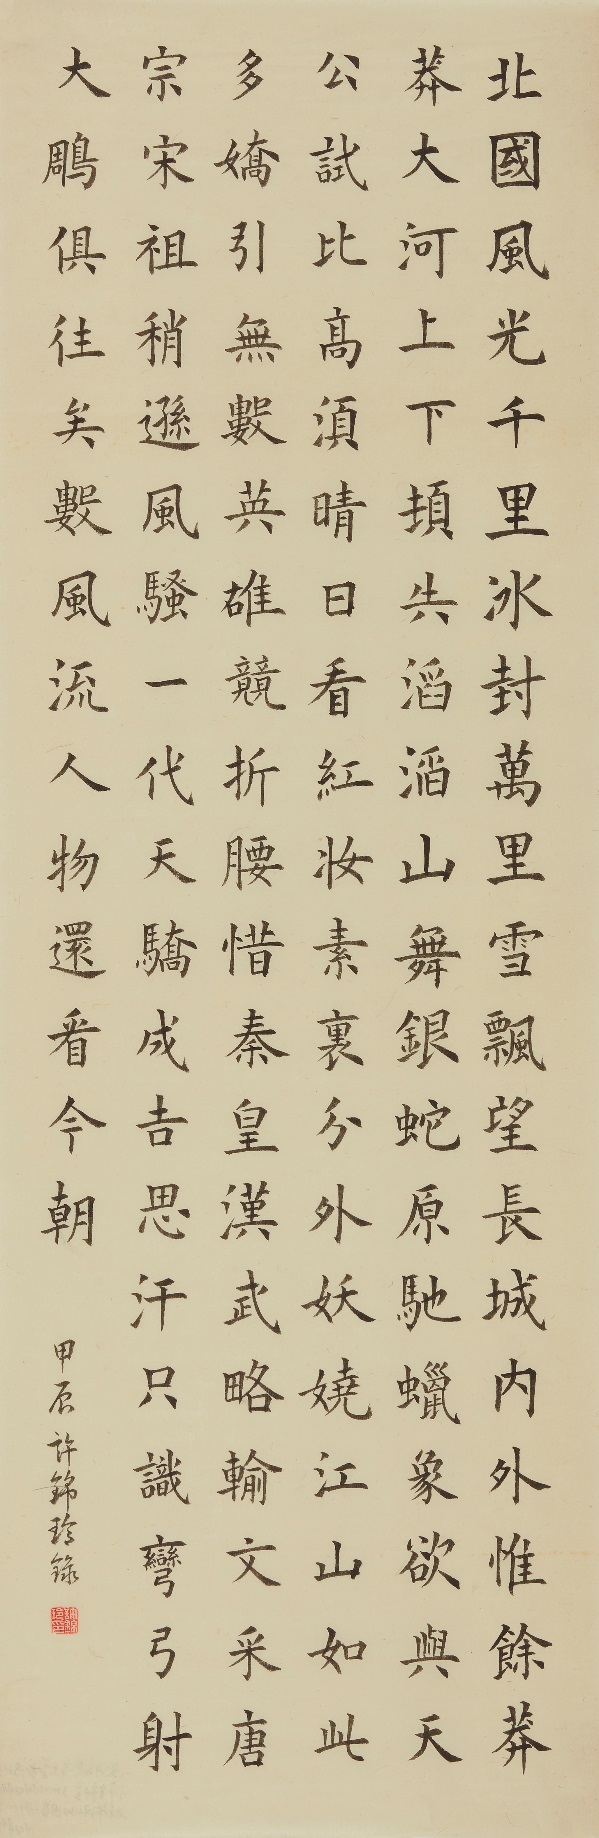 北國風光千里冰封萬里雪飄望長城内外惟餘莽
莽大河上下頓失滔滔山舞銀蛇原馳蠟象欲與天
公試比高須晴日看紅妝素裹分外妖嬈江山如此
多嬌引無數英雄競折腰惜秦皇漢武略輸文采唐
宗宋祖稍遜風騷一代天驕成吉思汗只識彎弓射
大鵰俱往矣數風流人物還看今朝
甲辰許錦玲錄